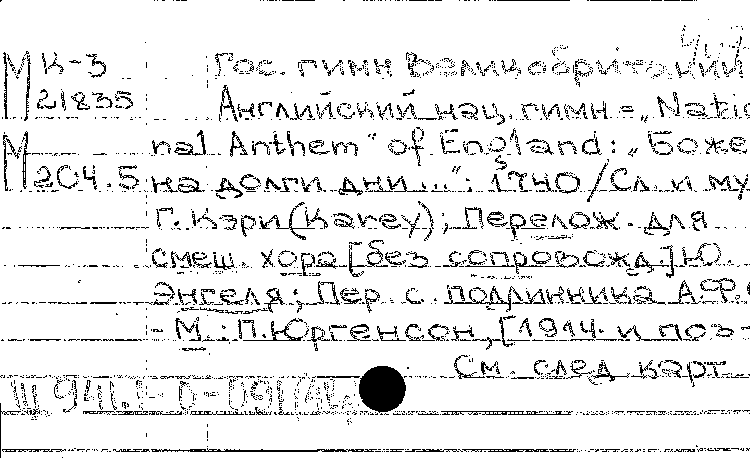 М К-3 Гос. гимн Великобритании
21835 Английский нац. гимн = „Natio
М nal Anthem" of England: „Боже
204.5 на долги дни...": 17но/Сл. и му
Г. Кэри (Karey); Перелож. для
смеш. хора [без сопровожд.] Ю.
Энгеля; Пер. с подлинника А.Ф.
- М.: П. Юргенсон, [1914. и поз-
См. след карт